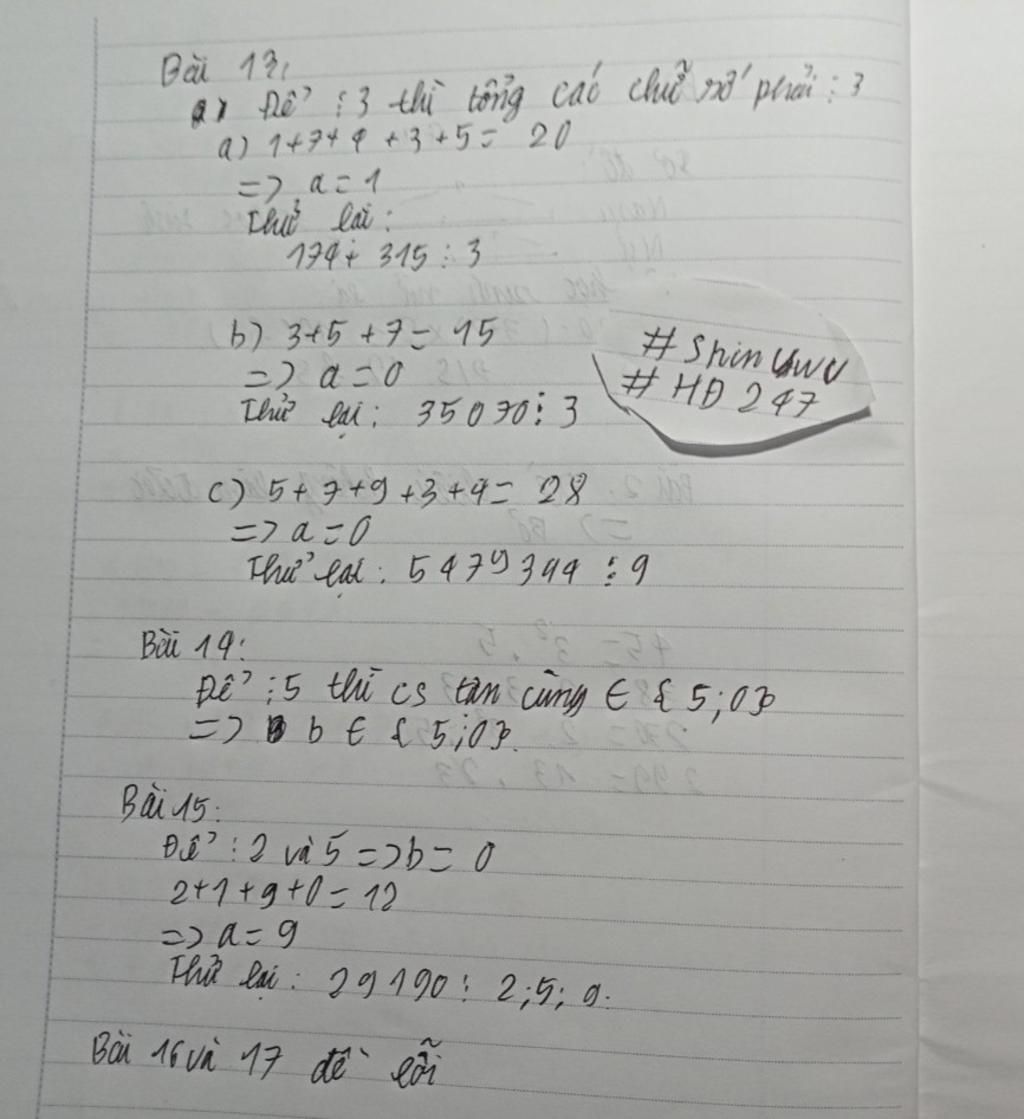 Bài 13:
a) Để ⋮ 3 thì tổng các chữ số phải ⋮ 3
a) 1+7+4+3+5= 20
=> a=1
Thử lại:
174315 ⋮ 3
b) 3+5+7=15
=> a=0
Thử lại: 35070 ⋮ 3
#Shin UwU
#HĐ 247
c) 5+7+9+3+4= 28
=> a=0
Thử lại: 5479344 ⋮ 9
Bài 14:
Để ⋮ 5 thì cs tận cùng ∈ {5;0}
=> b ∈ {5;0}.
Bài 15:
Để ⋮ 2 và 5 => b= 0
2+1+9+0= 12
=> a= 9
Thử lại: 29190 ⋮ 2;5; 9.
Bài 16 và 17 đề lỗi